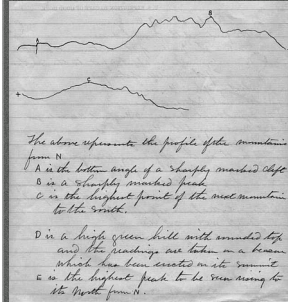 B
A
C
The above represents the profile of the mountains
from N
A is the bottom angle of a sharply marked cleft
B is a sharply marked peak
C is the highest point of the next mountain
to the South.
D is a high green hill with rounded top
and the readings are taken on a beacon
which has been erected on its summit
E is the highest peak to be seen rising to
the North from N.